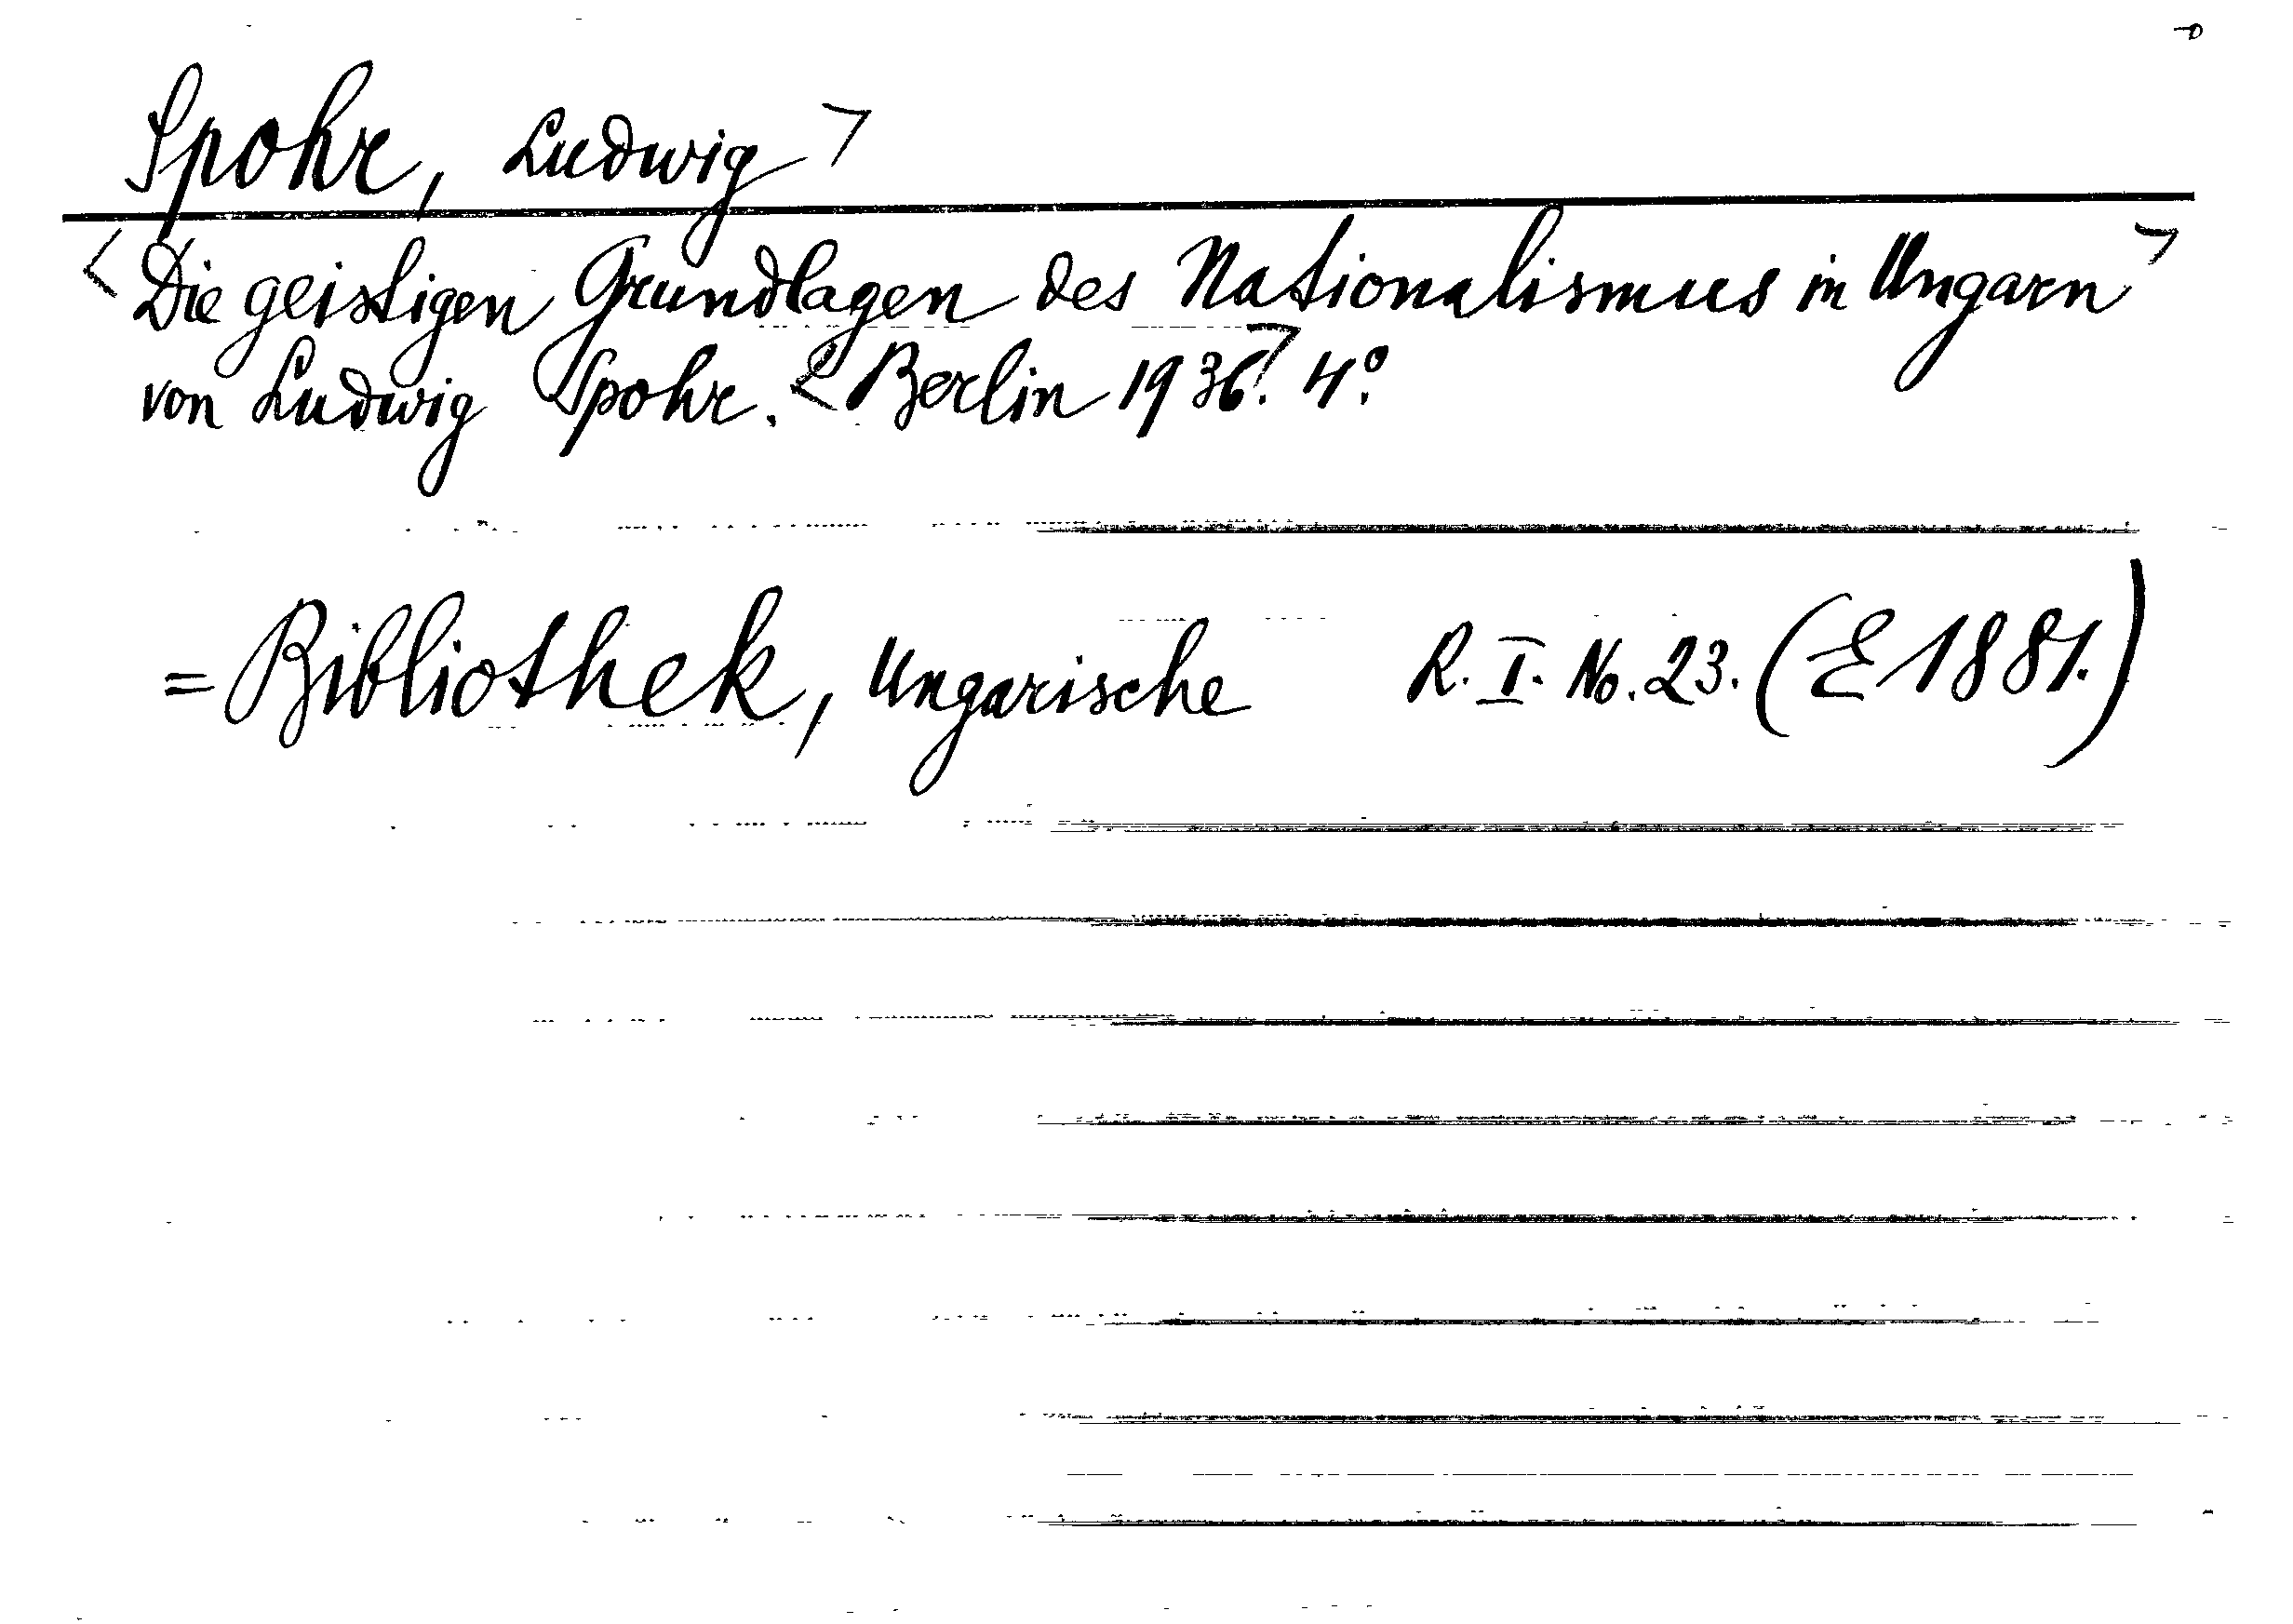 Spohr, Ludwig >
< Die geistigen Grundlagen des Nationalismus in Ungarn >
von Ludwig Spohr. < Berlin 1936. > 4°.
= Bibliothek, Ungarische R. I. No. 23. (E 1881.)